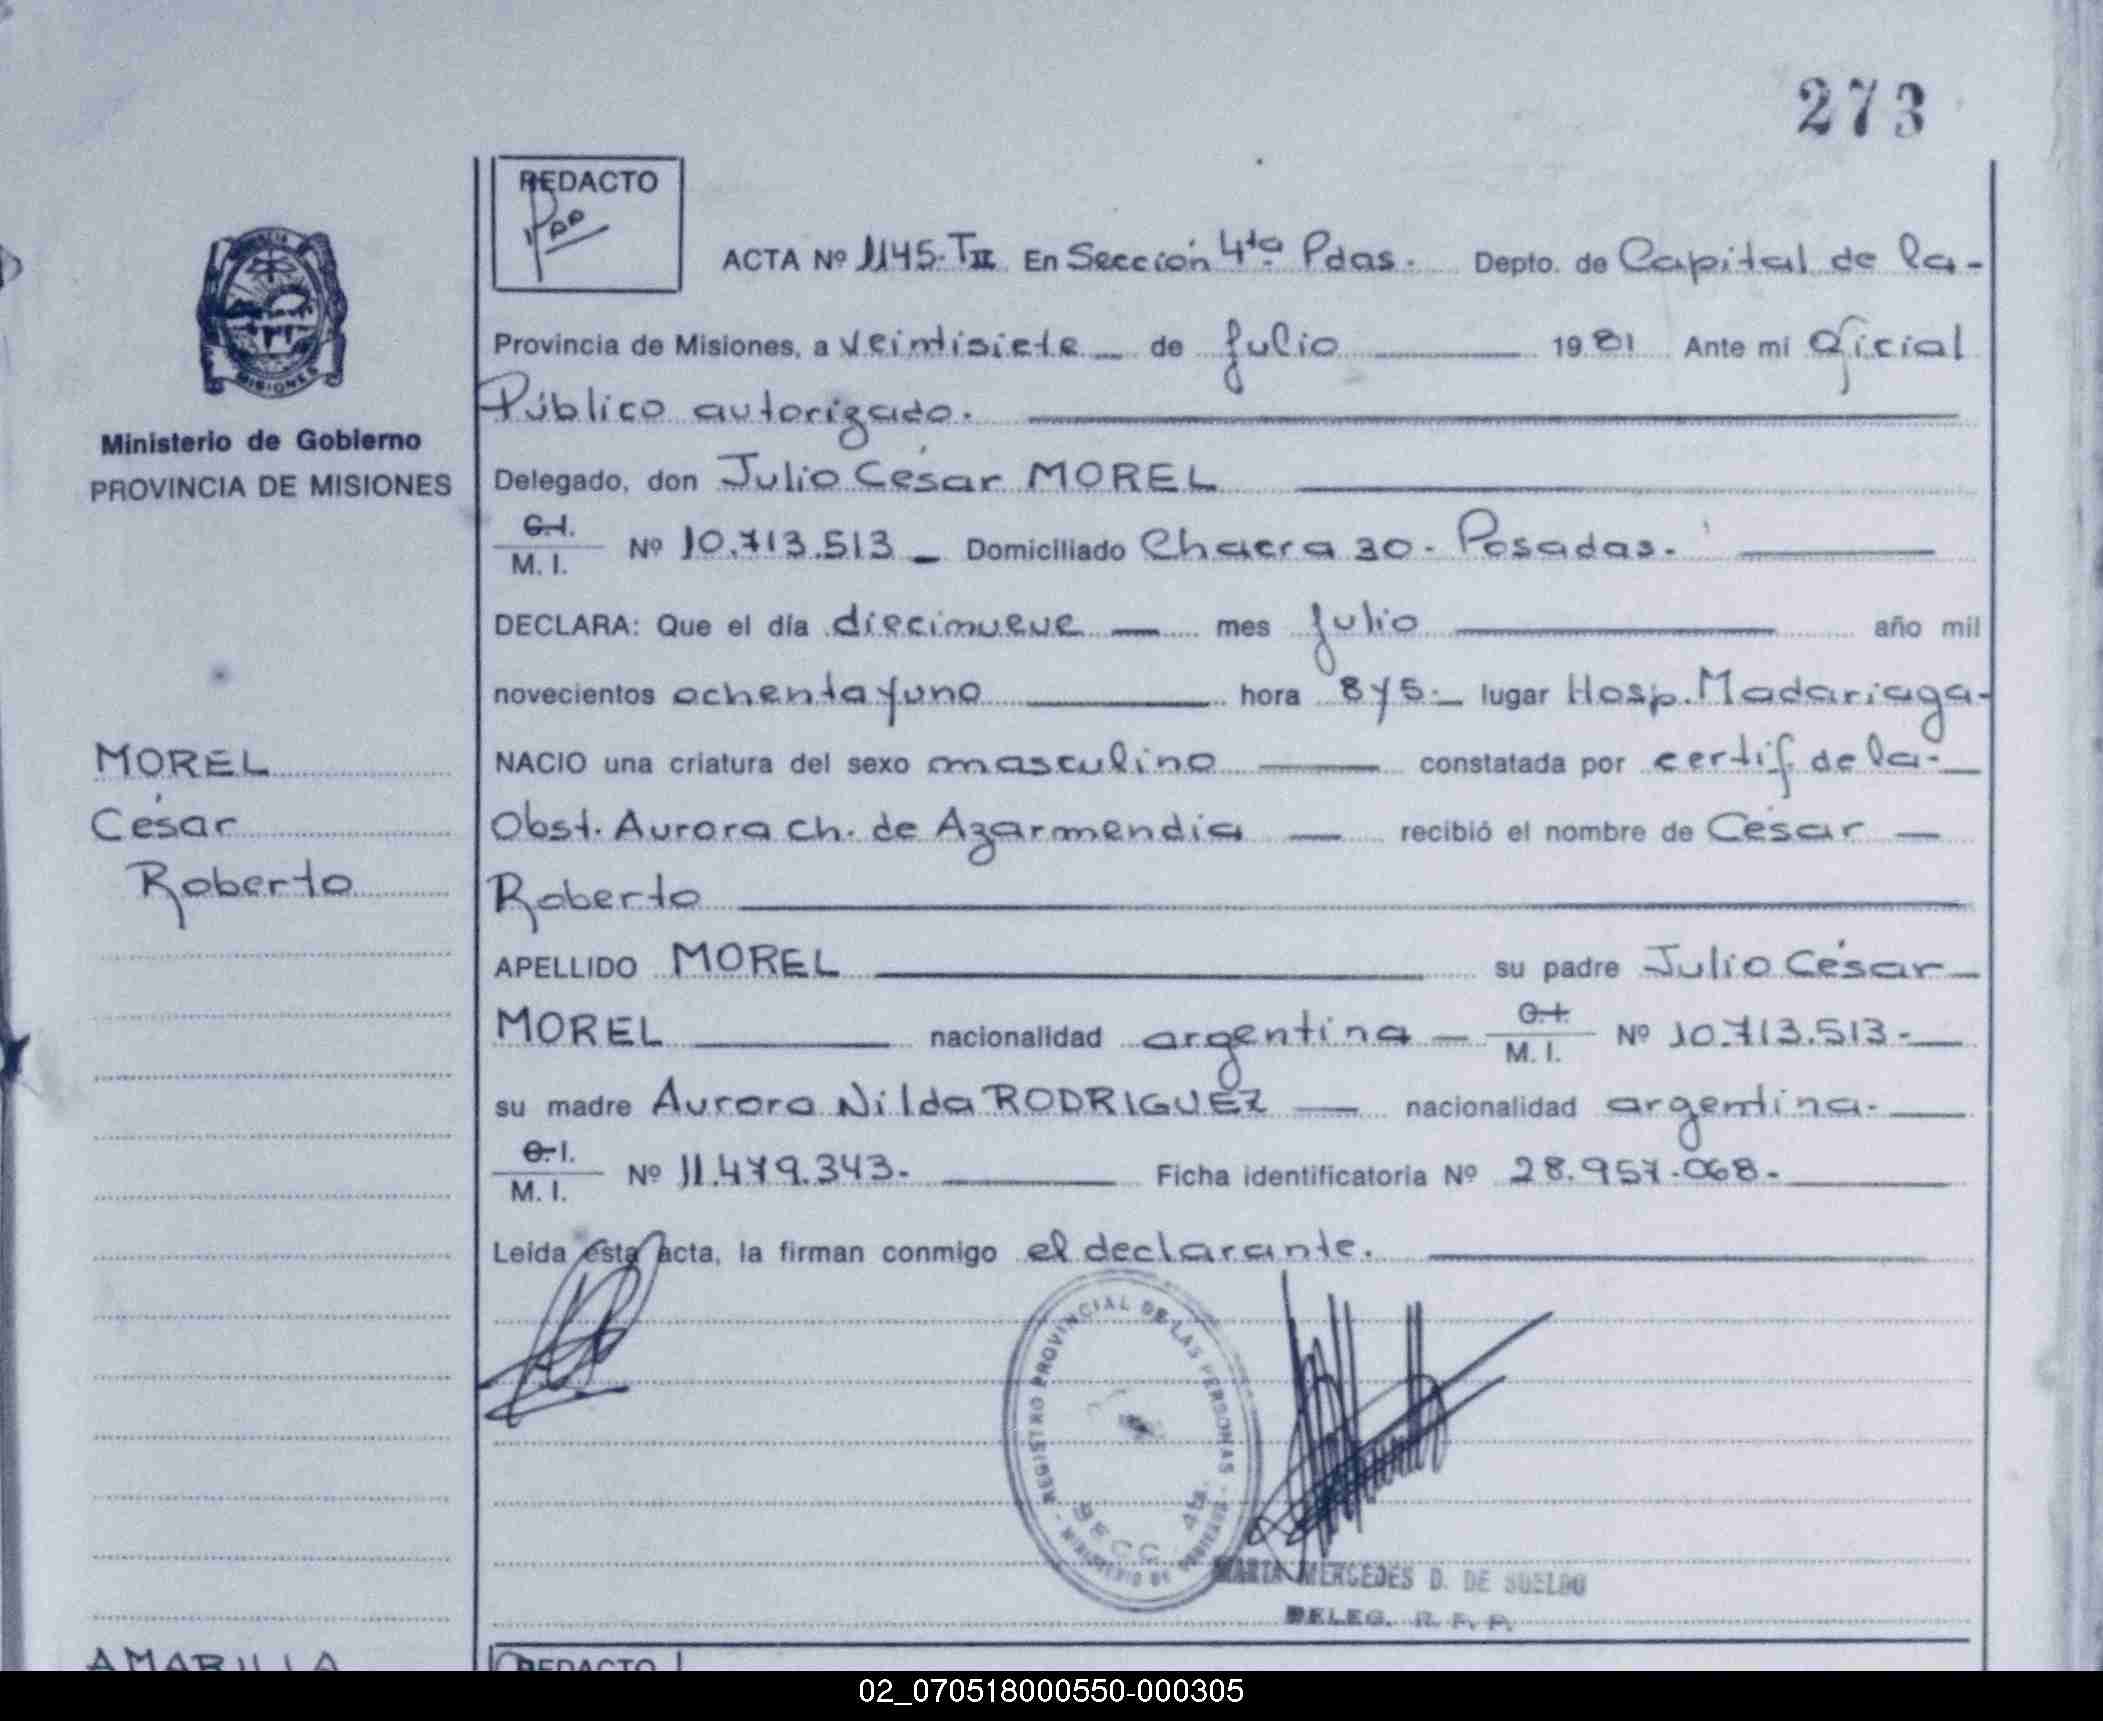 273
REDACTO
ACTA Nº 1145-TII En Sección 4ta Pdas. Depto. de Capital de la-
Provincia de Misiones, a veintisiete de julio 1981 Ante mi Oficial
Público autorizado.
Ministerio de Gobierno
PROVINCIA DE MISIONES
MISIONES
Delegado, don Julio César MOREL
C.I.
M. I. Nº 10.713.513 Domiciliado Chacra 30- Posadas.
DECLARA: Que el día diecinueve mes julio año mil
novecientos ochenta y uno hora 8 y 5- lugar Hosp. Madariaga-
NACIO una criatura del sexo masculino constatada por certif. de la-
Obst. Aurora Ch. de Azarmendia recibió el nombre de César
Roberto
APELLIDO MOREL su padre Julio César
MOREL nacionalidad argentina C.I.
M. I. Nº 10.713.513-
su madre Aurora Nilda RODRIGUEZ nacionalidad argentina-
C.I.
M. I. Nº 11.479.343- Ficha identificatoria Nº 28.957.068-
Leída esta acta, la firman conmigo el declarante.
MOREL
César
Roberto
REGISTRO PROVINCIAL DE LAS PERSONAS - MINISTERIO DE GOBIERNO -
SECC 4ta.
MARTA MERCEDES D. DE SUELDO
DELEG. R. P. P.
AMARILLA
REDACTO
02_070518000550-000305